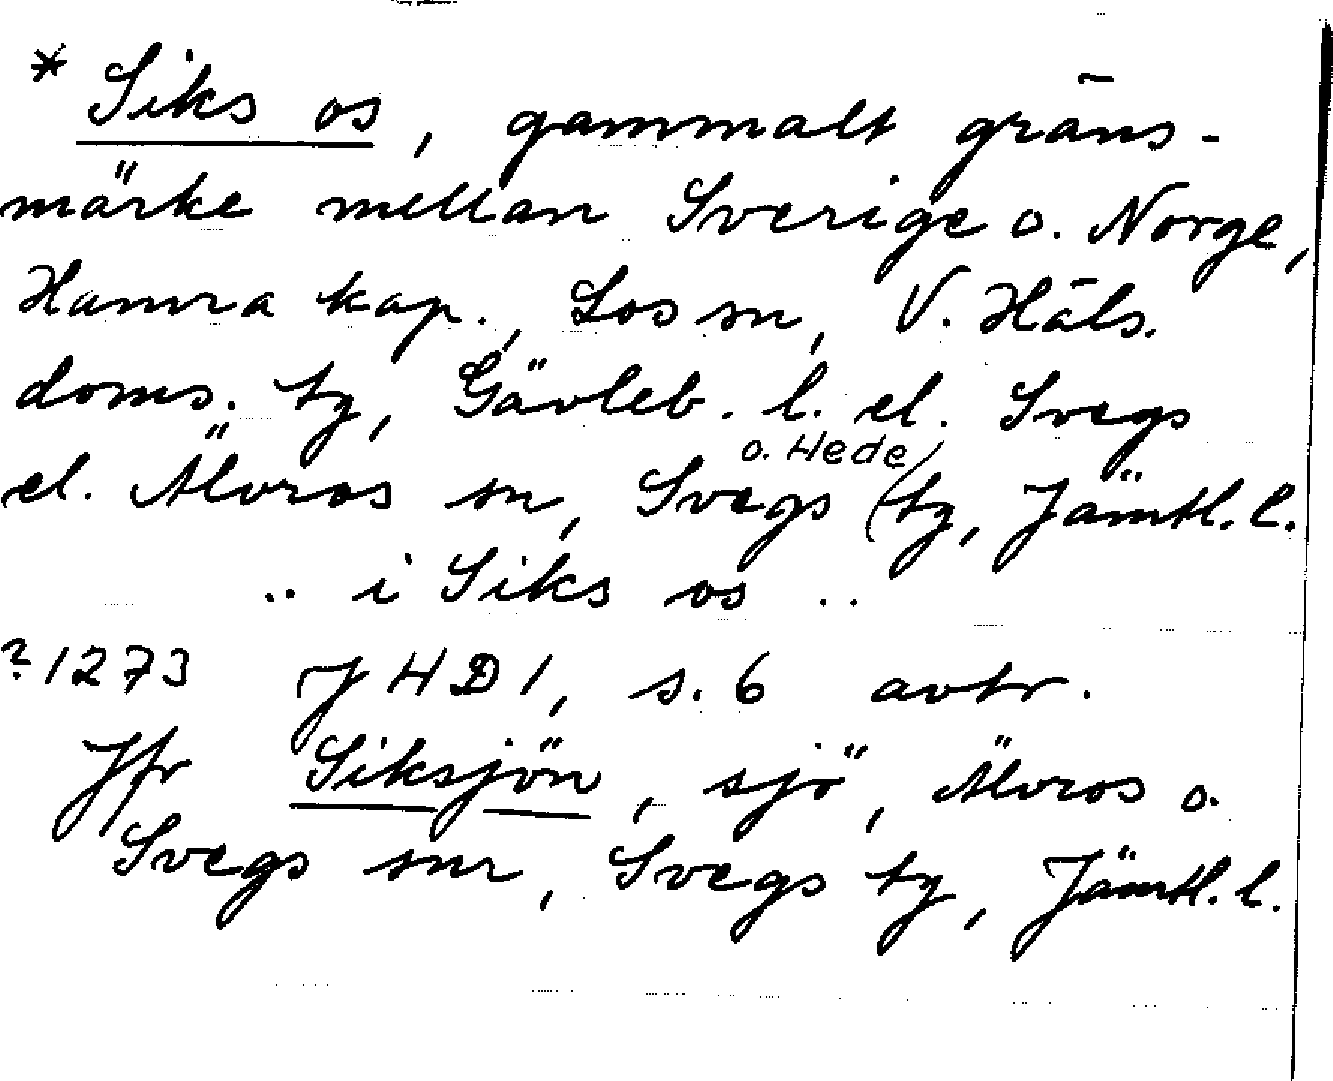 * Siks os, gammalt gräns-
märke mellan Sverige o. Norge,
Hamra kap., Los sn, V. Häls.
doms. tg, Gävleb. l. el. Svegs
el. Älvros sn, Svegs (o. Hede/ tg, Jämtl. l.
.. i Siks os ..
? 1273 JHD 1, s. 6 avtr.
Jfr Siksjön, sjö, Älvros o.
Svegs snr, Svegs tg, Jämtl. l.